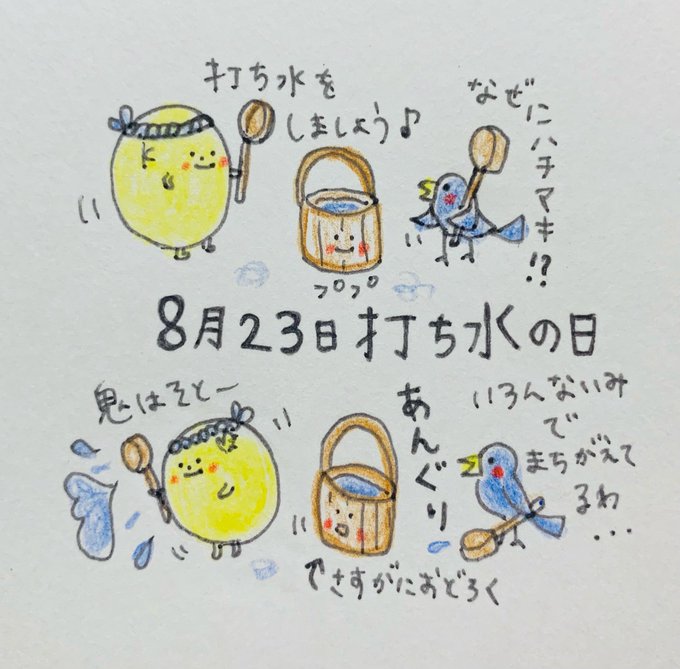 打ち水を
しましょう♪
なぜにハチマキ!?
プププ
8月23日打ち水の日
鬼はそとー
あんぐり
さすがにおどろく
いろんないみ
で
まちがえて
るわ
...